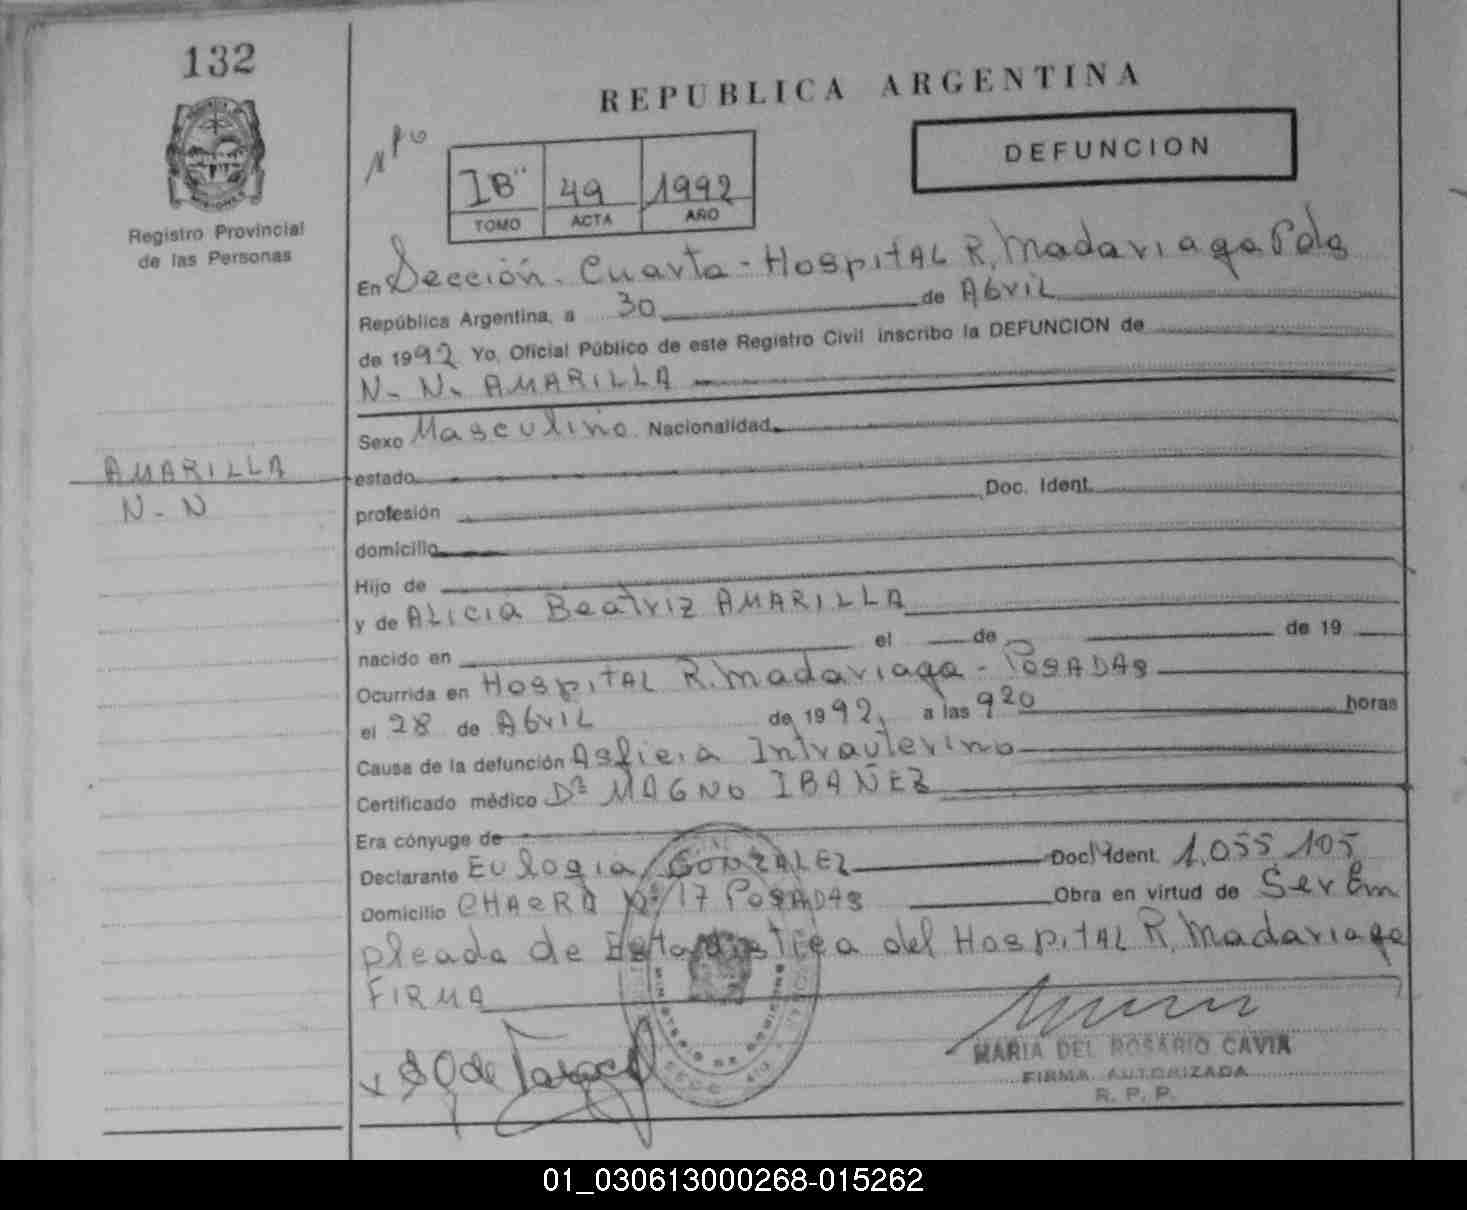 132
REPUBLICA ARGENTINA
DEFUNCION
IB" 49 1992
TOMO ACTA AÑO
Registro Provincial
de las Personas
En Sección. Cuarta - HospitAL R. Madariaga Pdas
República Argentina, a 30 de AbriL
de 1992 Yo, Oficial Público de este Registro Civil inscribo la DEFUNCION de
N. N. AMARILLA
Sexo Masculino Nacionalidad
AMARILLA
N - N
estado
profesión Doc. Ident.
domicilio
Hijo de
y de ALicia Beatriz AMARILLA
nacido en el de de 19
Ocurrida en HospitAL R. Madariaga - POSADAS
el 28 de AbriL de 1992, a las 920 horas
Causa de la defunción Asficia Intrauterino
Certificado médico Dr MAGNO IBAÑEZ
Era cónyuge de
Declarante Eulogia GONZALEZ Doc. Ident. 1.055 105
Domicilio CHACRA Nº 17 POSADAS Obra en virtud de Ser Em
pleada de Estadistica del HospitAL R. Madariaga
FIRMA
MINISTERIO DE GOBIERNO
MARIA DEL ROSARIO CAVIA
FIRMA AUTORIZADA
R. P. P.
01_030613000268-015262